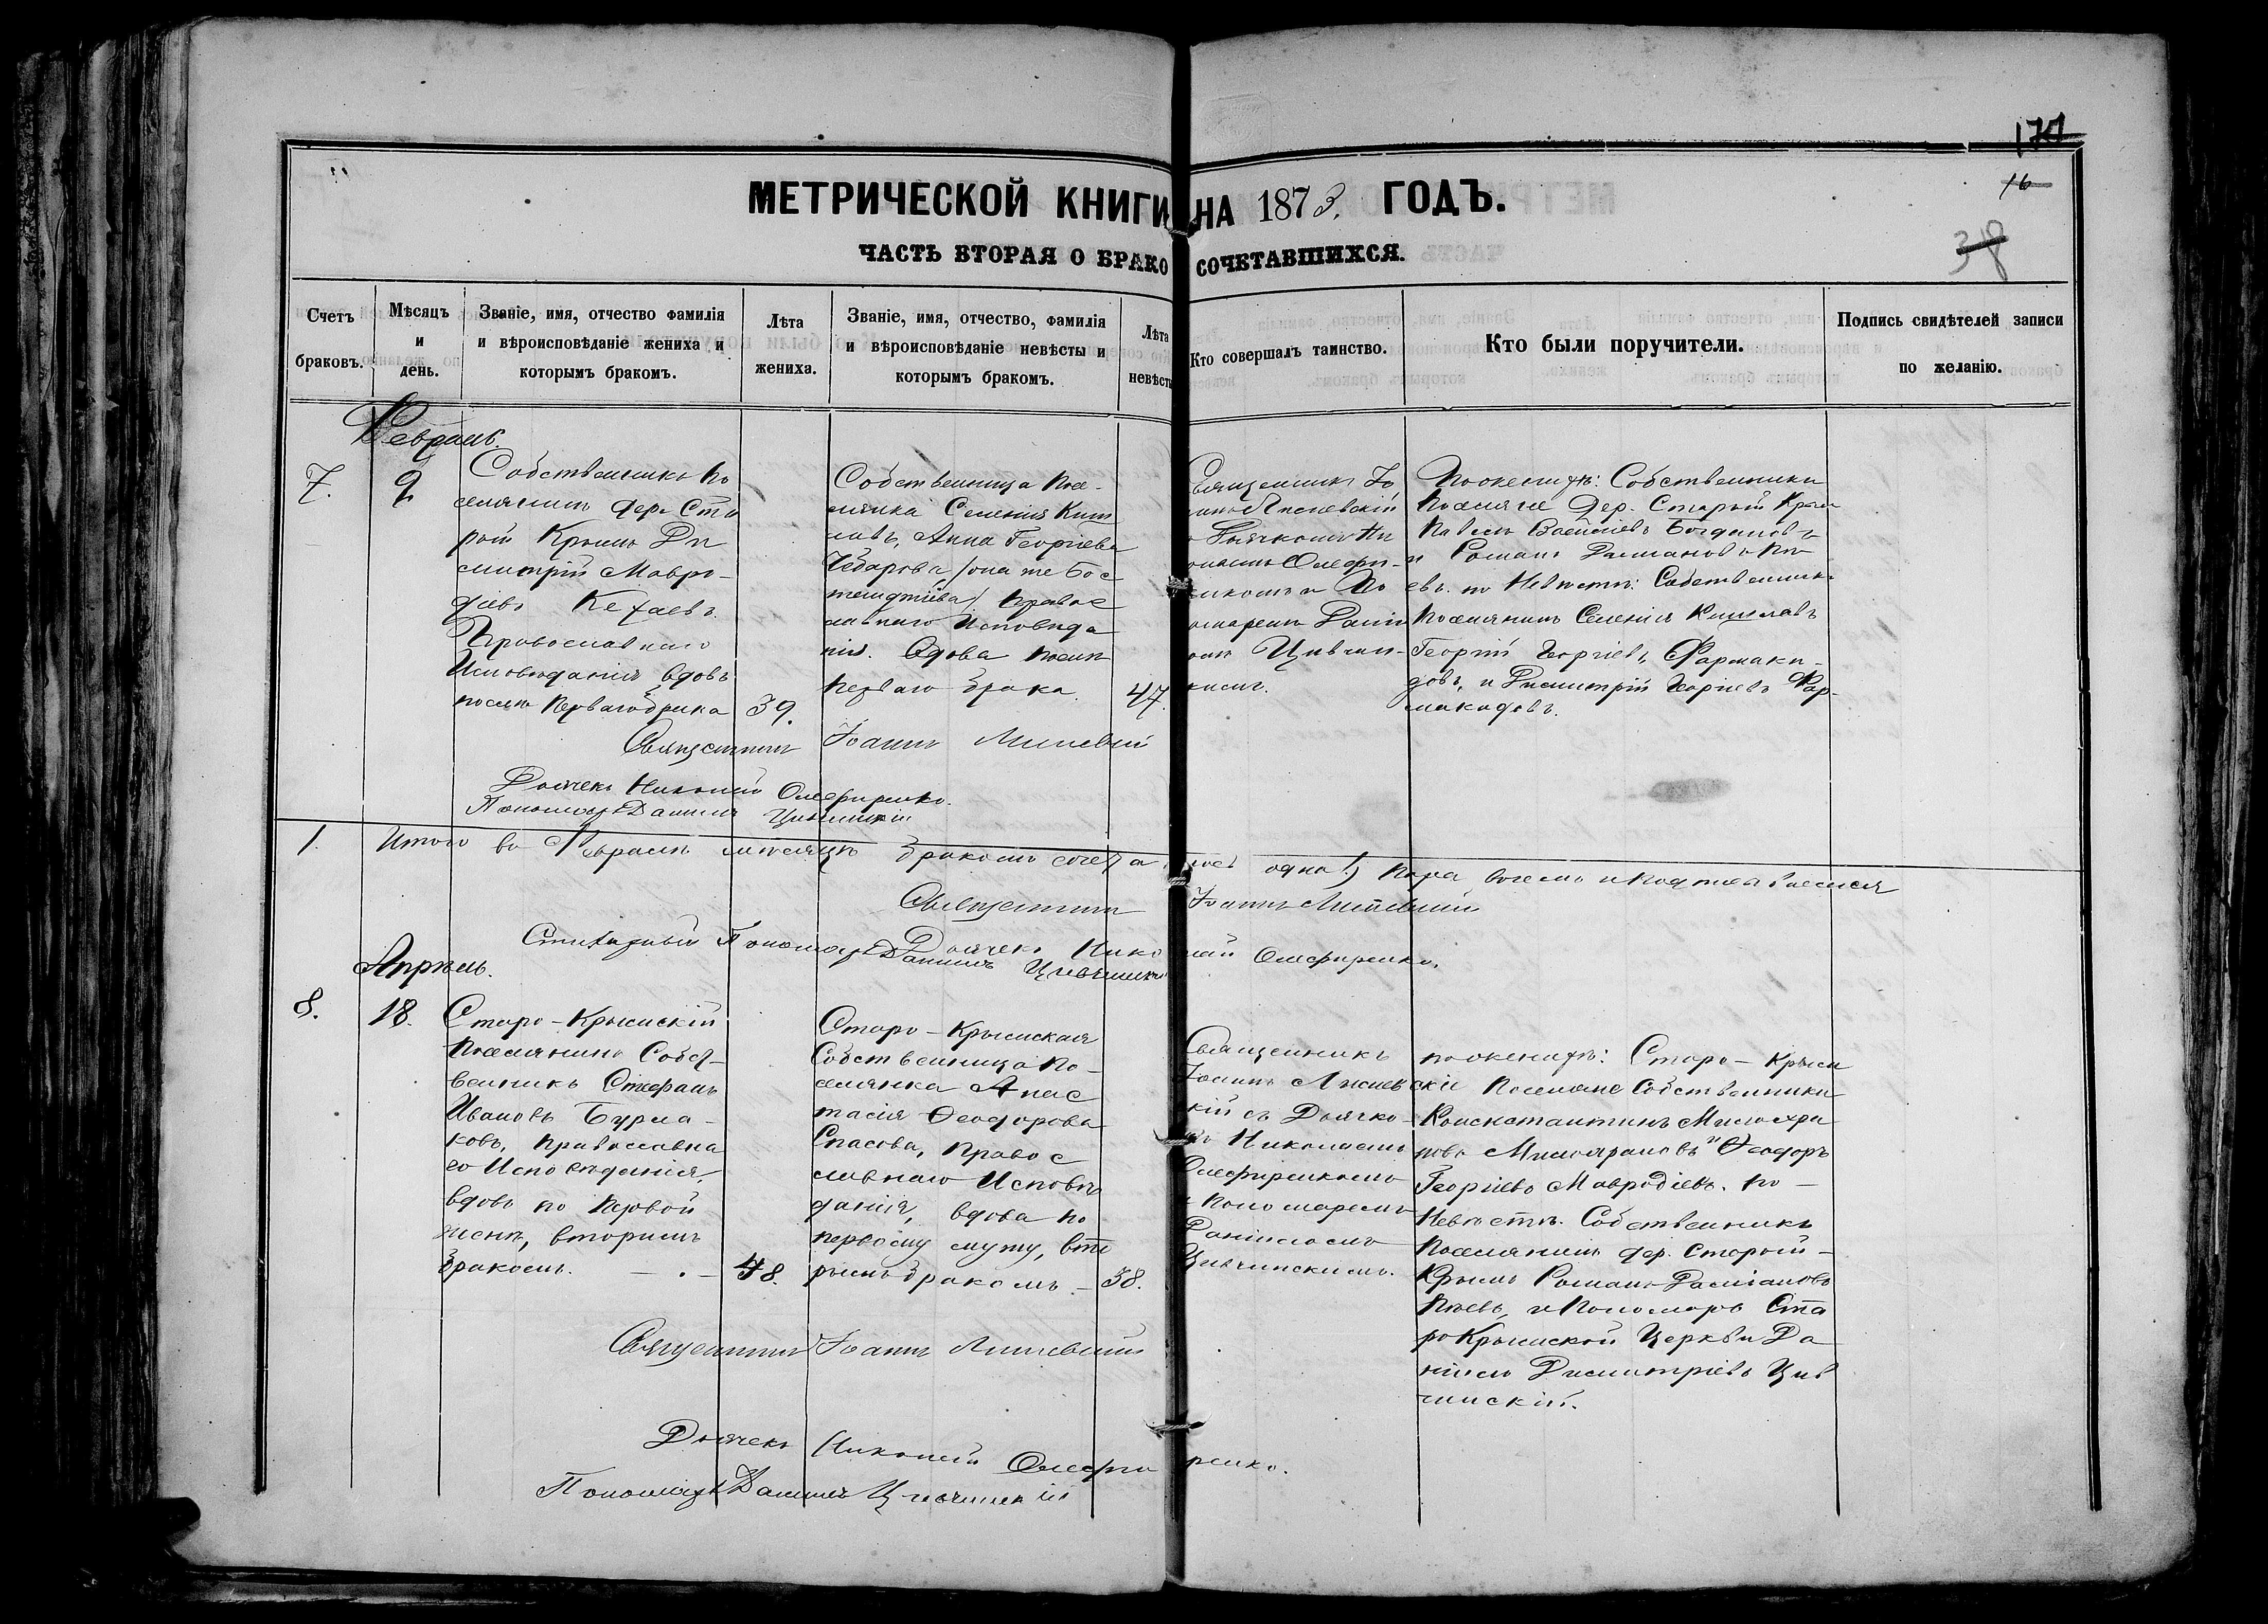 170
16
38
МЕТРИЧЕСКОЙ КНИГИ НА 1873. ГОДЪ.
ЧАСТЬ ВТОРАЯ О БРАКОСОЧЕТАВШИХСЯ.
Счетъ браковъ.
Мѣсяцъ и день.
Званіе, имя, отчество фамилія и вѣроисповѣданіе жениха и которымъ бракомъ.
Лѣта жениха.
Званіе, имя, отчество, фамилія и вѣроисповѣданіе невѣсты и которымъ бракомъ.
Лѣта невѣсты
Кто совершалъ таинство.
Кто были поручители.
Подпись свидѣтелей записи по желанію.
Февраль.
7.
9
Собственникъ по
селянинъ дер. Ста
рой Крымъ Ди
митрій Мавро-
діевъ Кехаевъ.
Православнаго
Исповѣданія вдовъ
послѣ перваго брака
39.
Собственница посе-
лянка Селенія
Анна Георгіева
Чебарова /она же Бос
танджіева/. Правос
лавнаго Исповѣда
нія. Вдова послѣ
перваго брака.
47.
Священникъ Іо
аннъ Лисневскій
съ Дьячкомъ Ни
колаемъ Олефи-
ренкомъ и По
номаремъ Дані
иломъ Цивчин-
скимъ.
По женихѣ: Собственники
Поселяне Дер. Старый Крымъ
Павелъ Васильевъ Богдановъ
и Романъ Даміановъ По-
евъ. по Невѣстѣ: Собственники
Поселянинъ Селенія
Георгій Георгіевъ Фармаки-
довъ, и Димитрій Георгіевъ Фар-
макидовъ.
Священникъ Іоаннъ Лисневскій
Дьячекъ Николай Олефиренко.
Пономарь Даніилъ Цивчинскій
1. Итого въ Февралѣ мѣсяцѣ бракомъ сочеталось одна (1) пара, въ чемъ и подписываемся
Священникъ Іоаннъ Лисневскій
Дьячекъ Николай Олефиренко.
Стихарный Пономарь Даніилъ Цивчинскій
Апрѣль.
8.
18.
Старо-Крымскій
поселянинъ Собст-
венникъ Стефанъ
Ивановъ Бурла-
ковъ, Православна
го Исповѣданія,
вдовъ по первой
женѣ, вторымъ
бракомъ.
48.
Старо-Крымская
Собственница по-
селянка Анас
тасія Ѳеодорова
Спасова, Правос
лавнаго Исповѣ
данія, вдова по
первому мужу, вто
рымъ бракомъ.
38.
Священникъ
Іоаннъ Лиснев
кій съ Дьячко-
мъ Николаемъ
Олефиренкомъ
и Пономаремъ
Даніиломъ
Цивчинскимъ.
по женихѣ: Старо-Крым
скіе Поселяне Собственники
Константинъ
и Ѳеодоръ
Георгіевъ Мавродіевъ. По-
Невѣстѣ. Собственникъ
Поселянинъ дер. Старой-
Крымъ Романъ Даміановъ
Поевъ, и Пономарь Ста
роКрымской Церкви Да
ніилъ Димитріевъ Цив
чинскій.
Священникъ Іоаннъ Лисневскій
Дьячекъ Николай Олефиренко.
Пономарь Даніилъ Цивчинскій